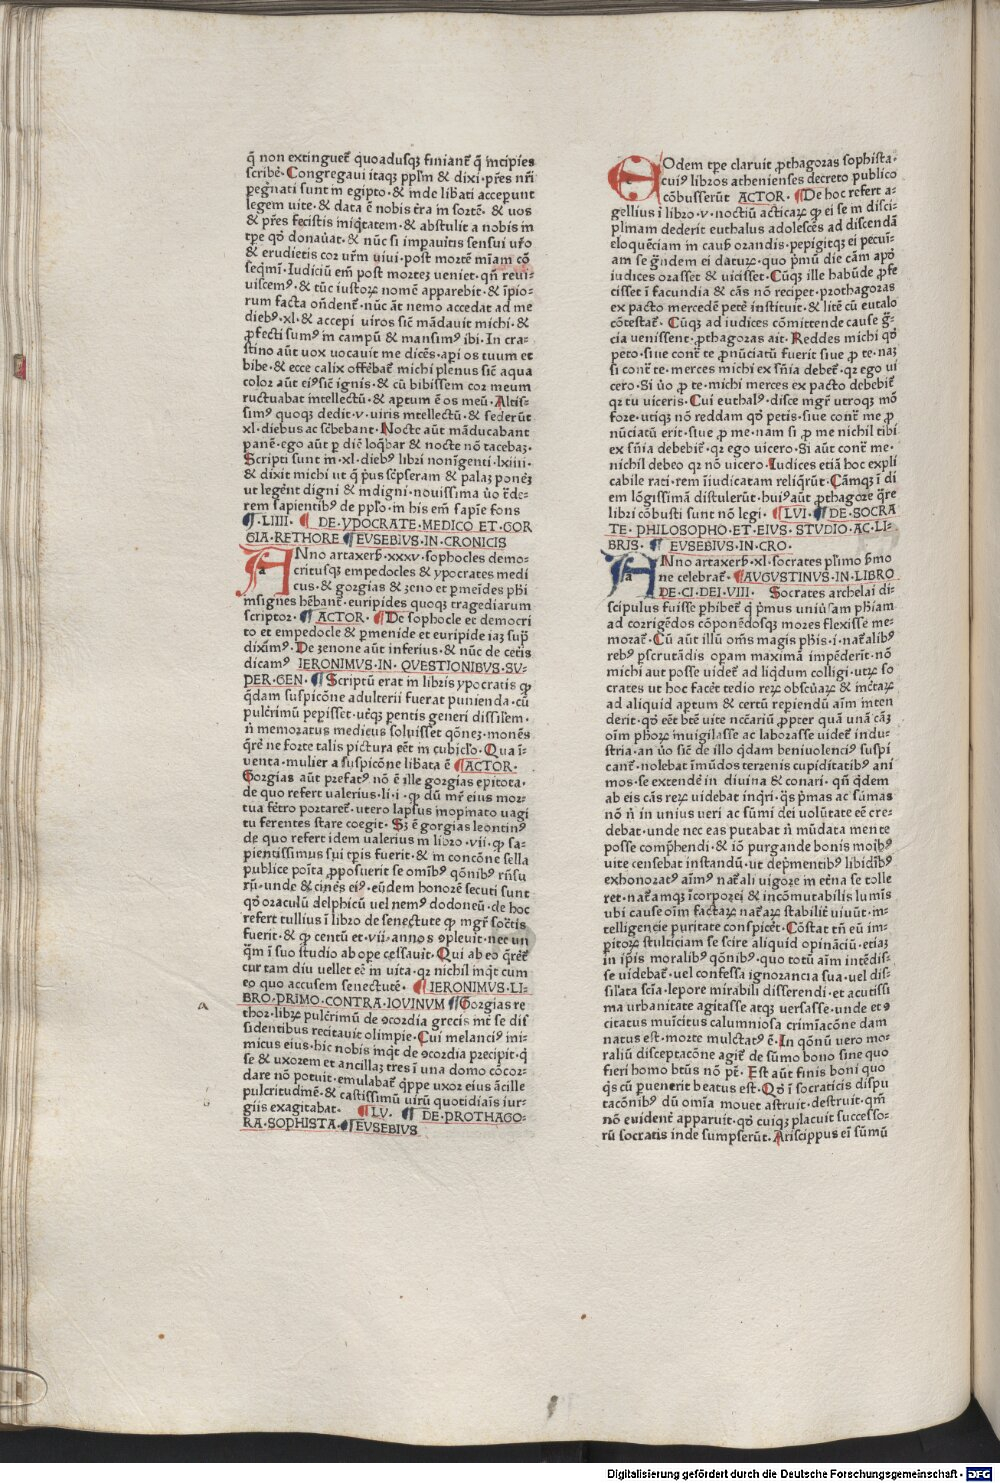 q̄ non extinguet᷑ quoadusqꝫ finiant᷑ q̄ incipies
scribe᷑. Congregaui itaqꝫ pplm & dixi. pr̄es nr̄i
pegͥnati sunt in egipto. & inde libati acceperunt
legem uite. & data ē nobis tr̄a in sortē. & uos
& pr̄es fecistis iniqͥtatem. & abstulit a nobis in
tpe qd̄ donau̓at. & nūc si impauitis sensui ur̄o
& erudietis cor ur̄m uiui. post mortē mīam cō
seqm̄i. Iudiciū em̄ post morteꝫ ueniet. qn̄ reui-
uiscemꝰ. & tūc iustoꝝ nomē apparebit. & īpio-
rum facta on̄dent᷑. nūc āt nemo accedat ad me
diebꝰ. xl. & accepi uiros sic̄ mādauit michi. &
ꝓfecti sumꝰ in campū & mansimꝰ ibi. In cra-
stino aūt uox uocauit me dicēs. api os tuum et
bibe. & ecce calix offēbat᷑ michi plenus sic̄ aqua
color aūt eiꝰ sic̄ ignis. & cū bibissem cor meum
ructuabat intellectū. & aptum ē os meū. Altis-
simꝰ quoqꝫ dedit. v. uiris intellectū. & sederūt
xl. diebus ac sc̄bebant. Nocte aūt māducabant
panē. ego aūt p diē loqͥbar & nocte nō tacebaꝫ.
Scripti sunt in. xl. diebꝰ libri nonīgenti. lxiiii.
& dixit michi ut q̄ pͥus sc̄pseram & palaꝫ poneꝫ
ut legēnt digni & indigni. nouissima u̓o tͣde-
rem sapientibꝰ de pplo. in his em̄ sapīe fons
¶. LIIII. ¶ DE. YPOCRATE. MEDICO. ET. GOR
GIA. RETHORE ¶ EVSEBIVS. IN. CRONICIS
ANno artaxerx̄. xxxv. sophocles demo-
critusqꝫ empedocles & ypocrates medi
cus. & gorgias & zeno et pmeīdes phī
insignes hēbant᷑. euripides quoqꝫ tragediarum
scriptor. ¶ ACTOR. ¶ De sophocle et democri
to et empedocle & pmenide et euripide iaꝫ sup̄
diximꝰ. De zenone aūt inferius. & nūc de cetīs
dicamꝰ IERONIMVS. IN. QVESTIONIBVS. SV-
PER. GEN. ¶ Scriptū erat in libris ypocratis ꝙ
qͣdam suspicōne adulterii fuerat punienda. cū
pulcr̄imū pepisset. utͥqꝫ pentis generi dissilem.
n̄ memoratus medicus soluisset qōneꝫ. monēs
qr̄ē ne forte talis pictura eēt in cubicl̄o. Qua ī-
uenta. mulier a suspicōne libata ē ¶ ACTOR.
Gorgias aūt prefatꝰ nō ē ille gorgias epirota.
de quo refert ualerius. li. i. ꝙ dū mr̄ eius mor-
tua fer̄tro portaret᷑. utero lapsus inopinato uagi
tu ferentes stare coegit. Sꝫ ē gorgias leontinꝰ
de quo refert idem ualerius in libro. vii. ꝙ sa-
pientissimus sui tp̄is fuerit. & in concōne sella
publice poīta ꝓposuerit se omībꝰ qōnibꝰ rn̄su
rū. unde & cinēs eiꝰ. eūdem honorē secuti sunt
qd̄ oraculū delphicū uel nemꝰ dodoneū. de hoc
refert tullius ī libro de senectute ꝙ mgr̄ socr̄tis
fuerit. & ꝙ centū et. vii. annos ꝯpleuit. nec un
qͣm ī suo studio ab ope cessauit. Qui ab eo qr̄ēt᷑
cur tam diu uellet eē in uita. qꝛ nichil inqͥt cum
eo quo accusem senectutē. ¶ IERONIMVS. LI-
BRO. PRIMO. CONTRA. IOVINVM ¶ Gorgias re
thor. libꝝ pulcr̄imū de ꝯcordia grecis int̄ se dis
sidentibus recitauit olimpie. Cui melanciꝰ ini-
micus eius. hic nobis inqͥt de ꝯcordia precipit. q̄
se & uxorem et ancillaꝫ tres ī una domo cōcor-
dare nō potuit. emulabat᷑ qͥppe uxor eius āncille
pulcritudinē. & castissimū uirū quotidianis iur-
giis exagitabat. ¶ LV. ¶ DE. PROTHAGO-
RA. SOPHISTA. ¶ EVSEBIVS
EOdem tpe claruit ꝓthagoras sophista.
cuiꝰ libros athenienses decreto publico
cōbusserūt ACTOR. ¶ De hoc refert a-
gellius ī libro. v. noctiū acticaꝝ ꝙ ei se in disci-
plinam dederit euthalus adolescēs ad discendā
eloquēciam in causꝭ orandis. pepigitqꝫ ei pecuī-
am se gͣndem ei datuꝝ. quo pͥmū die cām apd̄
iudices orasset & uicisset. Cūqꝫ ille habūde ꝓfe
cisset ī facundia & cās nō recipet. prothagoras
ex pacto mercedē petē instituit. & litē cū eutalo
cōtestat᷑. Cūqꝫ ad iudices cōmittende cause gͣ-
cia uenissent. ꝓthagoras ait. Reddes michi qd̄
peto. siue contͣ te ꝓnūciatū fuerit siue ꝓ te. naꝫ
si contͣ te. merces michi ex sn̄ia debet᷑. qꝛ ego ui
cero. Si u̓o ꝓ te. michi merces ex pacto debebit᷑
qꝛ tu uiceris. Cui euthalꝰ. disce mgr̄ utroqꝫ mō
fore. utiqꝫ nō reddam qd̄ petis. siue contͣ me ꝓ
nūciatū erit. siue ꝓ me. nam si ꝓ me nichil tibi
ex sn̄ia debebit᷑. qꝛ ego uicero. Si aūt contͣ me.
nichil debeo qꝛ nō uicero. Iudices etiā hoc expli
cabile rati. rem īiudicatam reliqͥrūt. Cāmqꝫ ī di
em lōgissimā distulerūt. huiꝰ aūt ꝓthagore qͣre
libri cōbusti sunt nō legi. ¶ LVI. ¶ DE. SOCRA
TE. PHILOSOPHO. ET. EIVS. STVDIO. AC. LI-
BRIS. ¶ EVSEBIVS. IN. CRO.
ANno artaxerx̄. xl. socrates plīmo s̄mo
ne celebrat᷑. ¶ AVGVSTINVS. IN. LIBRO
DE. CI. DEI. VIII. Socrates archelai di-
scipulus fuisse phibet᷑ q̄ pͥmus uniu̓sam phīam
ad corrigēdos cōponēdosqꝫ mores flexisse me-
morat᷑. Cū aūt illū om̄s magis phīs. i. nat᷑alibꝰ
rebꝰ pscrutādis opam maximā impēderīt. nō
michi aut posse uidet᷑ ad liqͥdum colligi. utꝝ so
crates ut hoc facet᷑ tedio reꝝ obscu̓aꝝ & inc̄taꝝ
ad aliquid aptum & certū repiendū aīm inten
derit. qd̄ eēt btē uite nccāriū ꝓpter quā unā cāꝫ
oīm phōꝝ inuigilasse ac laborasse uidet᷑ indu-
stria. an u̓o sic̄ de illo qͥdam beniuolenciꝰ suspi
cant᷑. nolebat īmūdos terrenis cupiditatibꝰ ani
mos. se extendē in diuina & conari. qn̄ qͥdem
ab eis cās reꝝ uidebat inqͥri. qͣs pͥmas ac sūmas
nō n̄ in unius ueri ac sūmi dei uolūtate eē cre-
debat. unde nec eas putabat n̄ mūdata mente
posse comprͪendi. & iō purgande bonis moibꝰ
uite censebat instandū. ut depͥmentibꝰ libidībꝰ
exhonoratꝰ aīmꝰ nat᷑ali uigore in etͥna se tolle
ret. nat᷑amqꝫ īcorporei & incōmutabilis lumīs
ubi cause oīm factaꝝ nat᷑aꝝ stabilit᷑ uiuūt. in-
telligencie puritate conspicēt. Cōstat tn̄ eū im-
pitoꝝ stulticiam se scire aliquid opināciū. etiaꝫ
in ip̄is moralibꝰ qōnibꝰ. quo totū aīm intēdis-
se uidebat᷑. uel confessa ignorancia sua. uel dis-
sil̄ata scīa. lepore mirabili disserendi. et acutissi
ma urbanitate agitasse atqꝫ uersasse. unde et ꝯ
citatus inuīcitus calumniosa crimīacōne dam
natus est. morte mulctatꝰ ē. In qōnū uero mo-
raliū disceptacōne agiē de sūmo bono sine quo
fieri homo btūs nō pt̄. Est aūt finis boni quo
qͥs cū puenerit beatus est. Qd̄ ī socraticis dispu
tacōnibꝰ dū om̄ia mouet astruit. destruit. qm̄
nō euident᷑ apparuit. qd̄ cuiqꝫ placuit successo-
rū socratis inde sumpserūt. Ariscippus ei̅ sūmū
Digitalisierung gefördert durch die Deutsche Forschungsgemeinschaft - DFG